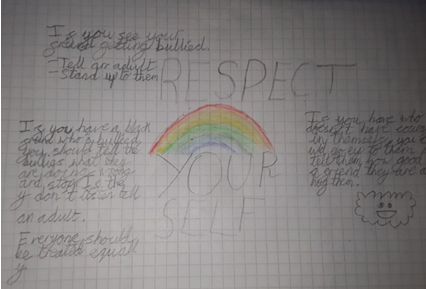 Is you see your
friend getting bullied.
-Tell an adult
-Stand up to them
RESPECT
YOUR
SELF
Is you have a black
friend who is bullied
you should tell the
bullies what they
are doing is wrong
and stop. Is they
don't listen tell
an adult.
Everyone should
be treated equall
y
Is you have
doesn't have
in themselves you
go up to them
Tell them how good
a friend they are
hug them.